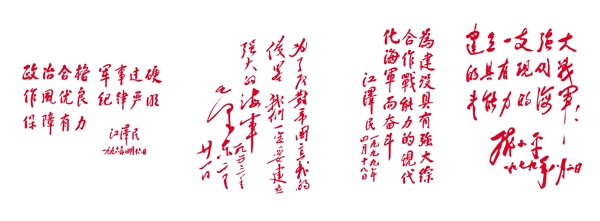 政治合格 军事过硬
作风优良 纪律严明
保障有力
江泽民
为了反对帝国主义的
侵略 我们一定要建立
强大的海军
毛泽东
廿一日
為建设具有强大综
合作戰能力的现代
化海軍而奋斗
江澤民
一九九九年
四月十八日
建立一支强大
的具有现代战
斗能力的海军
邓小平
一九七九年